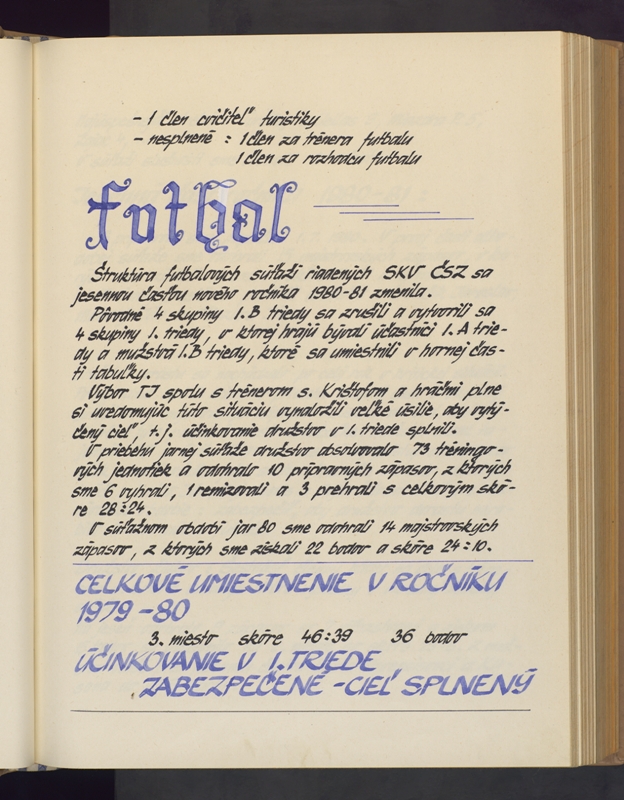 - 1 člen cvičiteľ turistiky
- nesplnené : 1 člen za trénera futbalu
1 člen za rozhodcu futbalu
Futbal
Štruktúra futbalových súťaží riadených SKV ČSZ sa
jesennou časťou nového ročníka 1980-81 zmenila.
Pôvodné 4 skupiny I.B triedy sa zrušili a vytvorili sa
4 skupiny I. triedy, v ktorej hrajú bývalí účastníci I.A trie-
dy a mužstvá I.B triedy, ktoré sa umiestnili v hornej čas-
ti tabuľky.
Výbor TJ spolu s trénerom s. Krištofom a hráčmi plne
si uvedomujúc túto situáciu vynaložili veľké úsilie, aby vytý-
čený cieľ, t.j. účinkovanie družstov v I. triede splnili.
V priebehu jarnej súťaže družstvo absolvovalo 73 tréningo-
vých jednotiek a odohralo 10 prípravných zápasov, z ktorých
sme 6 vyhrali, 1 remizovali a 3 prehrali s celkovým skó-
re 28:24.
V súťažnom období jar 80 sme odohrali 14 majstrovských
zápasov, z ktorých sme získali 22 bodov a skóre 24:10.
CELKOVÉ UMIESTNENIE V ROČNÍKU
1979-80
3. miesto skóre 46:39 36 bodov
ÚČINKOVANIE V I.TRIEDE
ZABEZPEČENÉ - CIEĽ SPLNENÝ